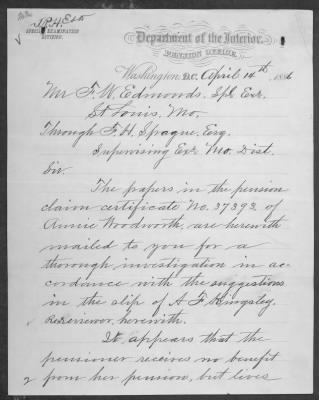 J.P.H. Esto
SPECIAL EXAMINATION
DIVISION.
Department of the Interior,
PENSION OFFICE,
Washington, D.C. April 14th, 1886
Mr. F. W. Edmonds, Spl. Exr.
St. Louis, Mo.
Through F. H. Sprague, Esq.
Supervising Exr. Mo. Dist.
Sir:
The papers in the pension
claim certificate No. 37393 of
Annie Woodworth, are herewith
mailed to you for a
thorough investigation in ac-
cordance with the suggestions
in the slip of A. F. Kingsley,
Re-Reviewer, herewith.
It appears that the
pensioner receives no benefit
from her pension, but lives